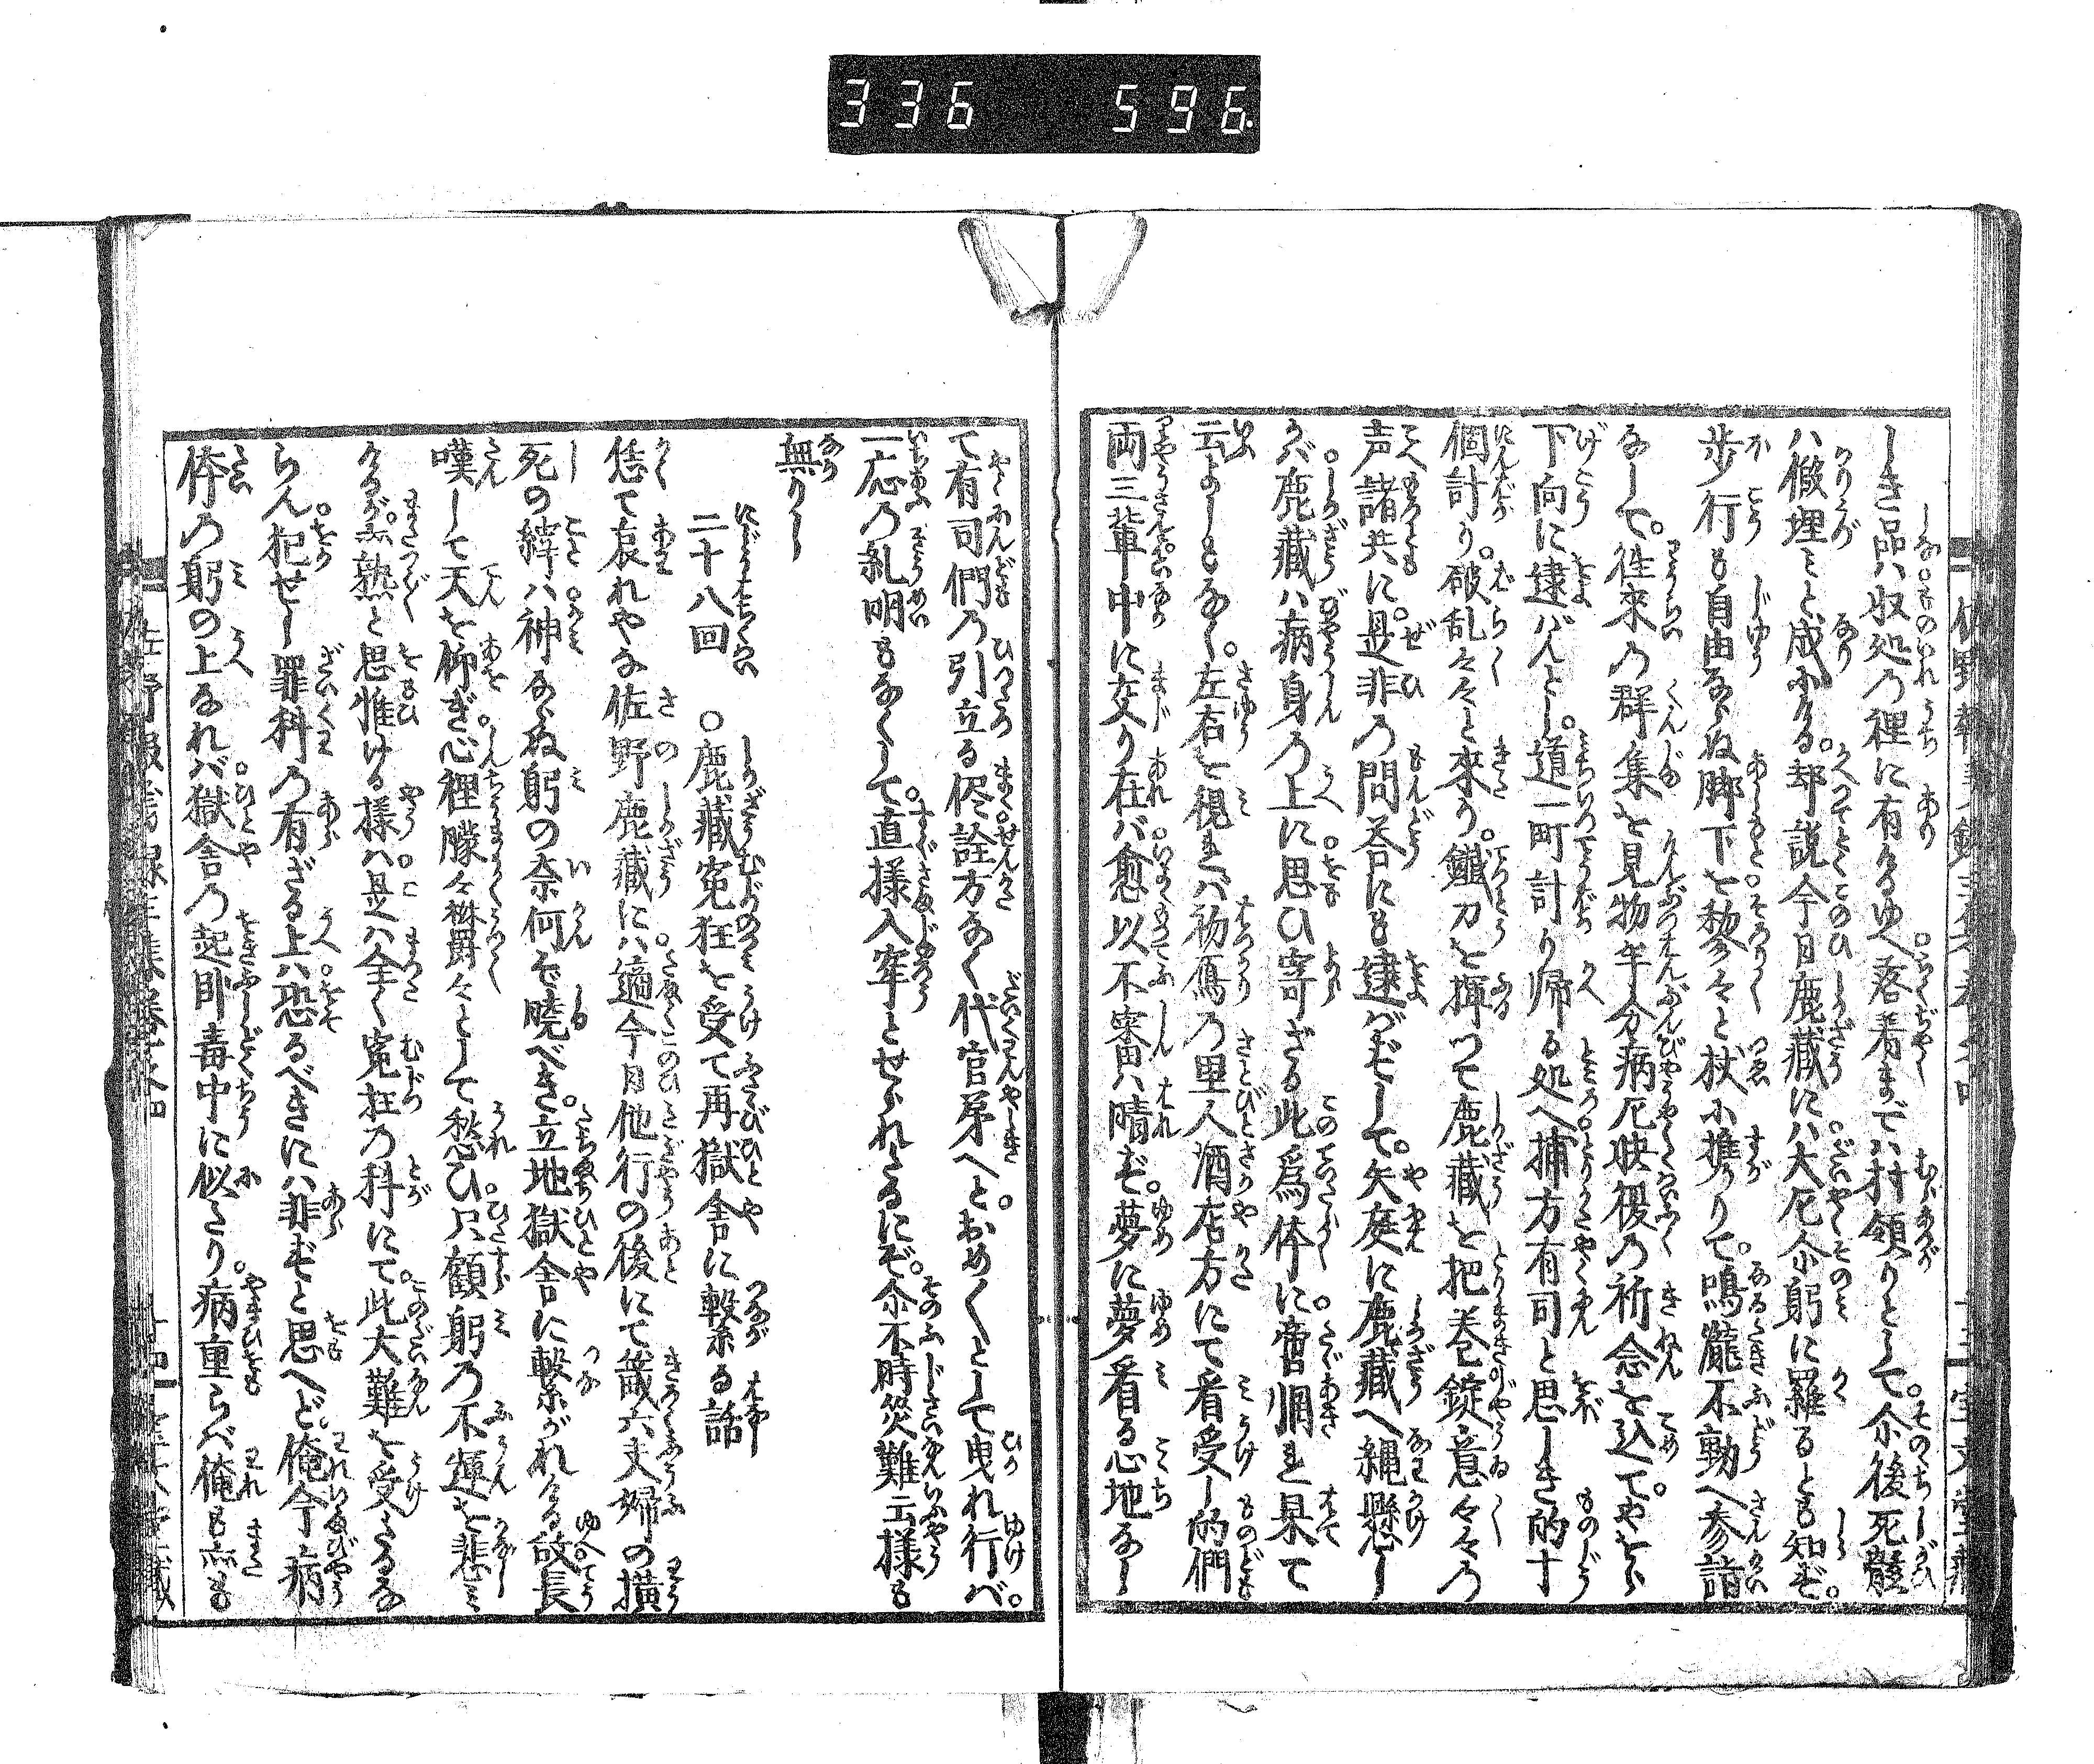 336 596
しき品ハ収処乃裡に有けるゆへ落着までハ村預りとして。尓後死骸
ハ仮埋ミと成にける。却説今日鹿蔵にハ大厄尓躬に羅るとも知ず。
歩行も自由ならぬ脚下を㔟々と杖に携りて。鳴瀧不動へ参詣
なして。徃来乃群集を見物半分病厄快復乃祈念を込てやをら
下向に逮バんとし。道一町計り帰る処へ捕方有司と思しき的十
個計り。破乱々々と来り。鐵刀を揮つて鹿蔵を把巻錠意々々乃
声諸共に。是非乃問荅にも逮バずして。矢庭に鹿蔵へ縄懸し
かバ鹿蔵ハ病身乃上に思ひ寄ざる此為体に啻惘れ果て
云よしもなく。左右を視れバ初鴈乃里人酒店方にて看受し的們
両三輩中に交り在バ愈以不審ハ晴ず。夢に夢看る心地なし
て有司們乃引立る侭詮方なく代官所へと。おめ〱として曳れ行バ。
一応乃糺明もなくして。直様入牢とせられたるにぞ。尓不時災難云様も
無りし
二十八回　〇鹿蔵寃枉を受て再獄舎に繋る話
恁て哀れやな佐野鹿蔵にハ適今日他行の後にて幾六夫婦の横
死の縡ハ神ならぬ躬の奈何で暁べき。立地獄舎に繋がれける故長
嘆して天を仰ぎ心裡朦々欝々として愁ひ只顧躬乃不運を悲ミ
けるが。熟と思惟ける様ハ是ハ全く寃枉乃科にて。此大難を受たるな
らん犯せし罪科乃有ざる上ハ恐るべきにハ非ずと思へど俺今病
体乃躬の上なれバ獄舎乃起卧毒中に似たり。病重らべ俺も亦も